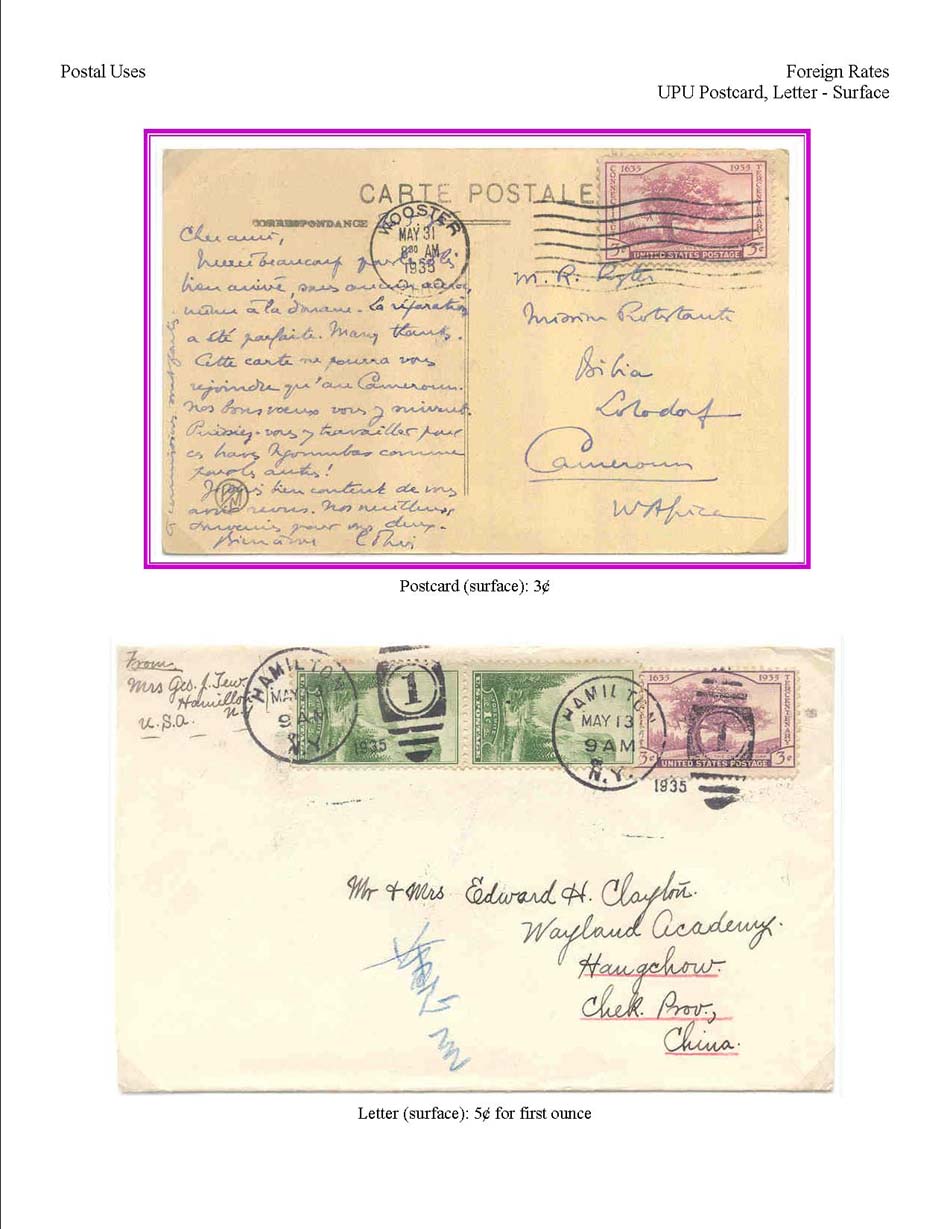 Postal Uses
Foreign Rates
UPU Postcard, Letter - Surface
CARTE POSTALE
CORRESPONDANCE
WOOSTER
MAY 31
8 30 AM
1935
O.
1635 1935
CONNECTICUT TERCENTENARY
3¢ 3¢
UNITED STATES POSTAGE
Cher ami,
Merci beaucoup
bien arrivé, sans aucun
même à la douane. La réparation
a été parfaite. Many thanks.
Cette carte ne pourra vous
rejoindre qu'au Cameroun.
Nos bons vœux vous y suivent.
Puissiez-vous y travailler pour
ces braves Ngoumbas comme
pour les autres!
bien content de vous
avoir revus. Nos meilleurs
souvenirs pour vous deux.
Bien à vous
M. R.
Mission Protestante
Bibia
Lolodorf
Cameroun
W Africa
Postcard (surface): 3¢
From
Mrs Geo. J. Tew
Hamilton
N.
U.S.A.
HAMILTON
MAY
9 AM
N.Y.
1935
1
HAMILTON
MAY 13
9 AM
N.Y.
1935
1
1635 1935
TERCENTENARY
3¢ 3¢
UNITED STATES POSTAGE
Mr + Mrs Edward H. Clayton.
Wayland Academy.
Hangchow.
Chek. Prov.,
China.
Letter (surface): 5¢ for first ounce